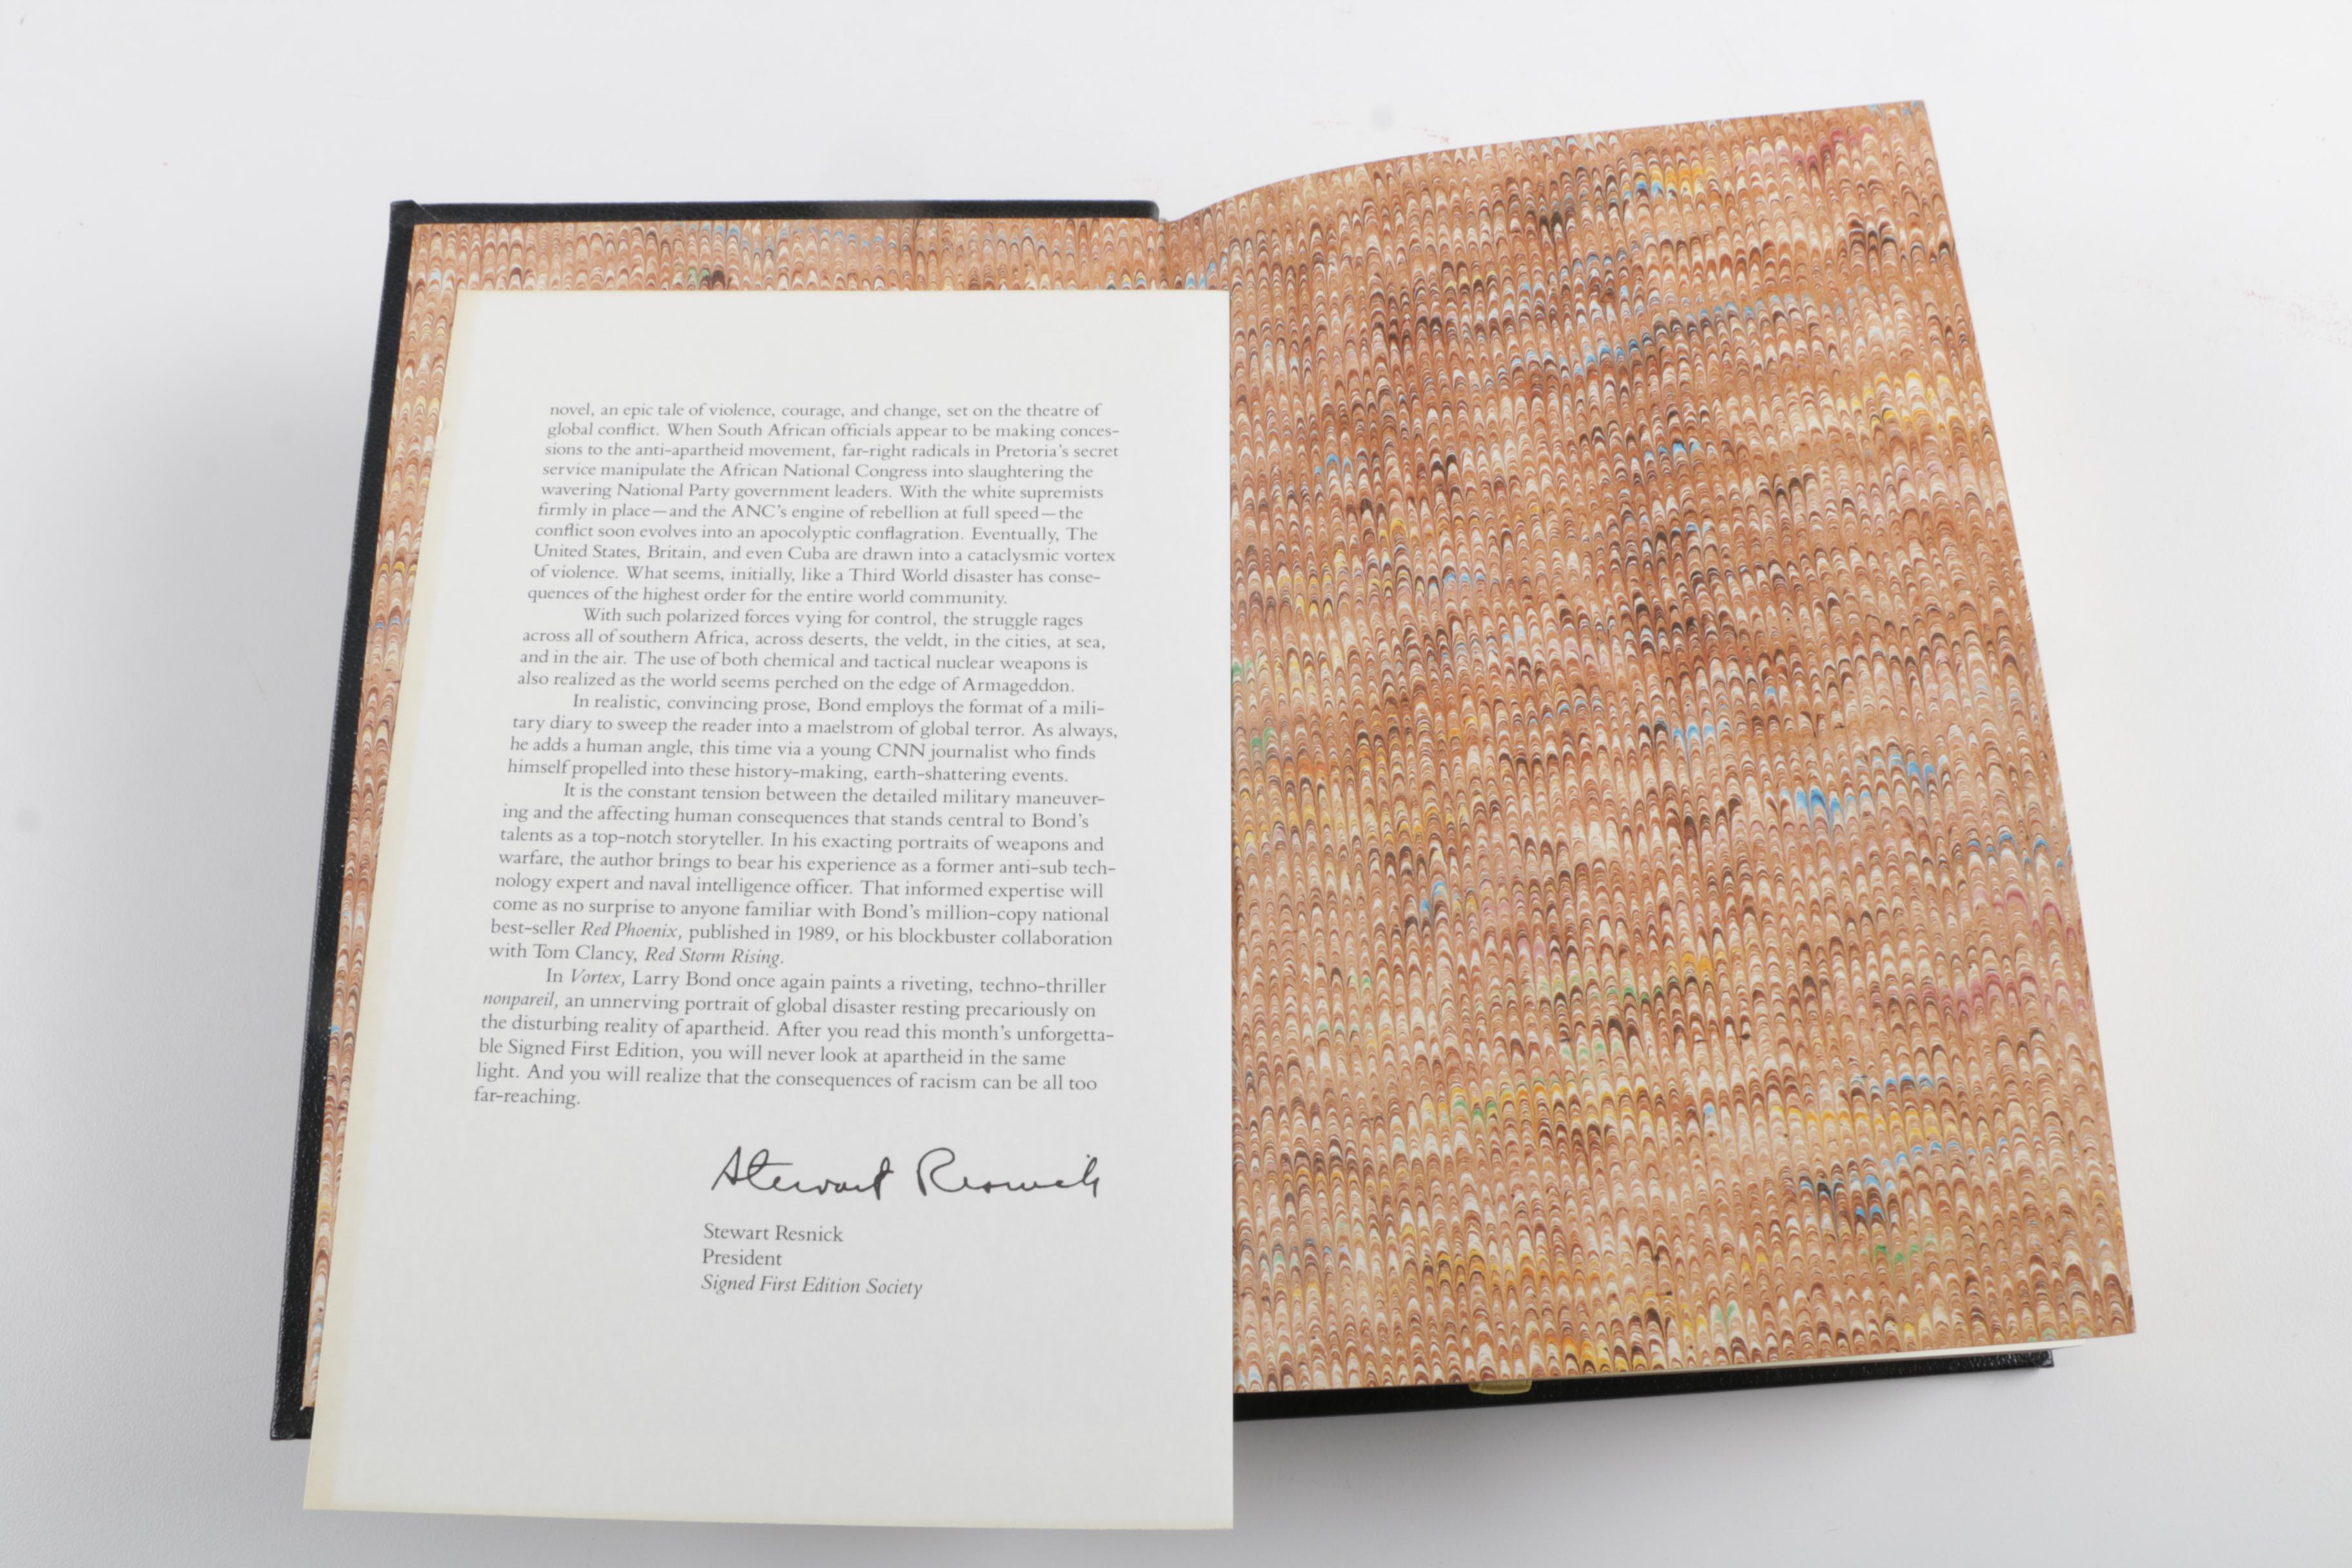 novel, an epic tale of violence, courage, and change, set on the theatre of
global conflict. When South African officials appear to be making conces-
sions to the anti-apartheid movement, far-right radicals in Pretoria's secret
service manipulate the African National Congress into slaughtering the
wavering National Party government leaders. With the white supremists
firmly in place—and the ANC's engine of rebellion at full speed—the
conflict soon evolves into an apocolyptic conflagration. Eventually, The
United States, Britain, and even Cuba are drawn into a cataclysmic vortex
of violence. What seems, initially, like a Third World disaster has conse-
quences of the highest order for the entire world community.
With such polarized forces vying for control, the struggle rages
across all of southern Africa, across deserts, the veldt, in the cities, at sea,
and in the air. The use of both chemical and tactical nuclear weapons is
also realized as the world seems perched on the edge of Armageddon.
In realistic, convincing prose, Bond employs the format of a mili-
tary diary to sweep the reader into a maelstrom of global terror. As always,
he adds a human angle, this time via a young CNN journalist who finds
himself propelled into these history-making, earth-shattering events.
It is the constant tension between the detailed military maneuver-
ing and the affecting human consequences that stands central to Bond's
talents as a top-notch storyteller. In his exacting portraits of weapons and
warfare, the author brings to bear his experience as a former anti-sub tech-
nology expert and naval intelligence officer. That informed expertise will
come as no surprise to anyone familiar with Bond's million-copy national
best-seller Red Phoenix, published in 1989, or his blockbuster collaboration
with Tom Clancy, Red Storm Rising.
In Vortex, Larry Bond once again paints a riveting, techno-thriller
nonpareil, an unnerving portrait of global disaster resting precariously on
the disturbing reality of apartheid. After you read this month's unforgetta-
ble Signed First Edition, you will never look at apartheid in the same
light. And you will realize that the consequences of racism can be all too
far-reaching.
Stewart Resnick
Stewart Resnick
President
Signed First Edition Society